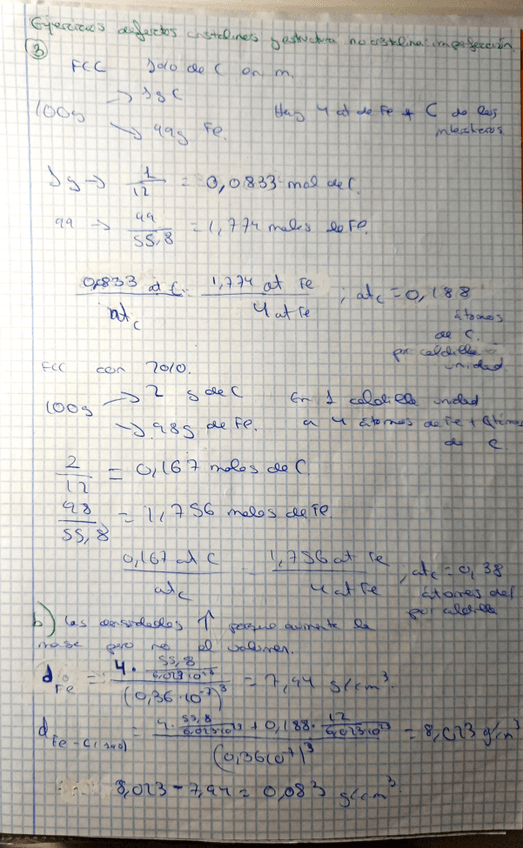 Ejercicios defectos cristalinos y estructura no cristalina: imperfección
3
FCC 1% de C en m
100g → 1g C
→ 99g Fe.
Hay 4 at de Fe + C de los
intersticios
1g → 1/12 = 0,0833 mol de C.
99 → 99/55,8 = 1,774 moles de Fe.
0,0833 at C / at_C = 1,774 at Fe / 4 at Fe ; at_C = 0,188
átomos
de C.
por celdilla
unidad.
FCC con 2%.
100g → 2 g de C
→ 98g de Fe.
En 1 celdilla unidad
4 átomos de Fe + átomos
de C
2/12 = 0,167 moles de C
98/55,8 = 1,756 moles de Fe
0,167 at C / at_C = 1,756 at Fe / 4 at Fe , at_C = 0,38
átomos de C
por celdilla
b) Las densidades ↑ porque aumenta la
masa pero no el volumen.
d_Fe = 4 · 55,8/6,023·10^23 / (0,36·10^-7)^3 = 7,94 g/cm^3.
d_Fe-C(1%) = 4 · 55,8/6,023·10^23 + 0,188 · 12/6,023·10^23 / (0,36·10^-7)^3 = 8,023 g/cm^3
8,023 - 7,94 = 0,083 g/cm^3